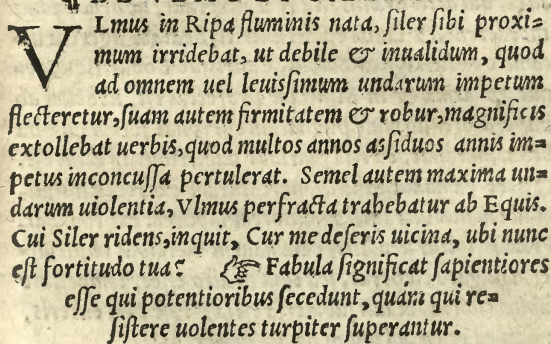 VLmus in Ripa fluminis nata, siler sibi proxi=
mum irridebat, ut debile & inualidum, quod
ad omnem uel leuissimum undarum impetum
flecteretur, suam autem firmitatem & robur, magnificis
extollebat uerbis, quod multos annos assiduos annis im=
petus inconcussa pertulerat. Semel autem maxima un=
darum uiolentia, Vlmus perfracta trahebatur ab Equis.
Cui Siler ridens, inquit, Cur me deseris uicina, ubi nunc
est fortitudo tua? ☞ Fabula significat sapientiores
esse qui potentioribus secedunt, quàm qui re=
sistere uolentes turpiter superantur.